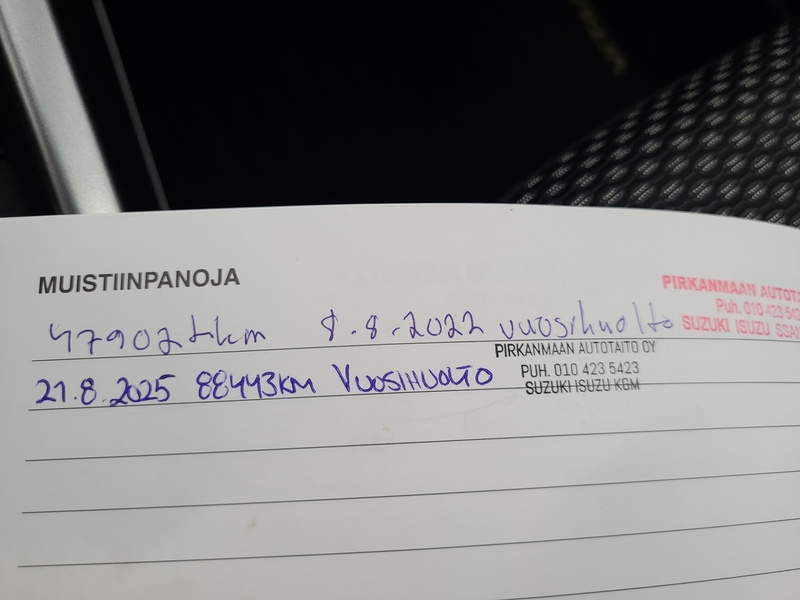 MUISTIINPANOJA
47902 tkm 8.8.2022 vuosihuolto
PIRKANMAAN AUTOTA
Puh. 010 423 542
SUZUKI ISUZU SSA
21.8.2025 88443KM VUOSIHUOLTO
PIRKANMAAN AUTOTAITO OY
PUH. 010 423 5423
SUZUKI ISUZU KGM